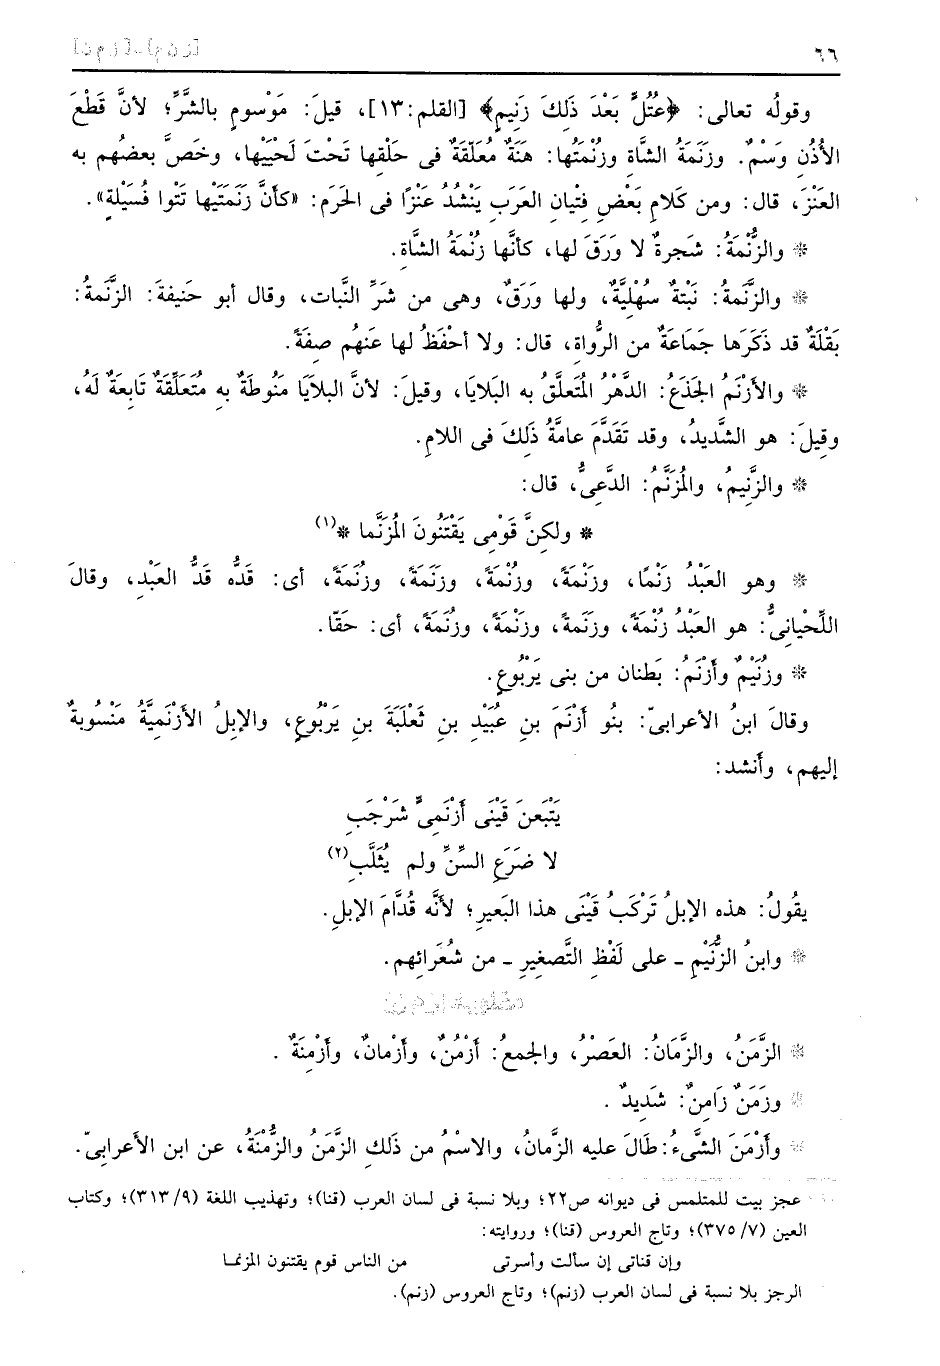 ٦٦
وقولُه تعالى: ﴿عُتُلٍّ بَعْدَ ذَلِكَ زَنِيمٍ﴾ [القلم:١٣]، قيلَ: مَوْسومٍ بالشَّرِّ؛ لأنَّ قَطْعَ
الأُذُنِ وَسْمٌ. وزَنَمَةُ الشَّاة وزُنْمَتُها: هَنَةٌ مُعَلَّقَةٌ فى حَلْقها تَحْتَ لَحْيَيْها، وخَصَّ بعضُهم به
العَنْزَ، قال: ومن كَلامِ بَعْضِ فِتْيان العَرَب يَنْشُدُ عَنْزًا فى الحَرَم: «كأنَّ زَنَمَتَيْها تَتْوا قُسَيْلَةٍ».
* والزُّنْمَةُ: شَجرةٌ لا وَرَقَ لها، كأنَّها زُنْمَةُ الشَّاة.
* والزَّنَمةُ: نَبْتةٌ سُهْلِيَّةٌ، ولها وَرَقٌ، وهى من شَرِّ النَّبات، وقال أبو حَنيفةَ: الزَّنَمةُ:
بَقْلَةٌ قد ذَكَرَها جَمَاعَةٌ من الرُّواة، قال: ولا أحْفَظُ لها عَنهُم صِفَةً.
* والأزْنَمُ الجَذَعُ: الدَّهْرُ المُتَعلَّقُ به البَلايَا، وقيلَ: لأنَّ البلاَيَا مَنُوطَةٌ به مُتَعَلِّقَةٌ تَابعَةٌ لَهُ،
وقِيلَ: هو الشَّديدُ، وقد تَقَدَّمَ عامَّةُ ذلِكَ فى اللامِ.
* والزَّنِيمُ، والمُزَنَّمُ: الدَّعىُّ، قال:
* ولكنَّ قَوْمِى يَقْتَنُونَ المُزَنَّما *(١)
* وهو العَبْدُ زَنْمًا، وزَنْمَةً، وزُنْمَةً، وزَنَمَةً، وزُنَمَةً، أى: قَدُّه قَدُّ العَبْدِ، وقالَ
اللِّحْيانِىُّ: هو العَبْدُ زُنْمَةً، وزَنَمةً، وزَنْمَةً، وزُنَمَةً، أى: حَقّا.
* وزُنَيْمٌ وأزْنَمُ: بَطنان من بنى يَرْبُوعٍ.
وقالَ ابنُ الأعرابىّ: بنُو أزْنَمَ بنِ عُبَيْدِ بنِ ثَعْلَبَةَ بنِ يَرْبُوعٍ، والإبلُ الأزْنَمِيَّةُ مَنْسُوبةٌ
إليهم، وأنشد:
يَتْبَعنَ قَيْنَى أزْنَمِىٍّ شَرْجَبِ
لا ضَرَعِ السِّنِّ ولم يُثَلَّبِ(٢)
يقُولُ: هذه الإبلُ تَرْكَبُ قَيْنَى هذا البَعيرِ؛ لأنَّه قُدَّامَ الإبلِ.
* وابنُ الزُّنَيْمِ ـ على لَفْظِ التَّصغيرِ ـ من شُعَرائهم.
* الزَّمَنُ، والزَّمَانُ: العَصْرُ، والجمعُ: أزْمُنٌ، وأزْمانٌ، وأزْمِنَةٌ.
* وزَمَنٌ زَامِنٌ: شَديدٌ.
* وأزْمَنَ الشَّىءُ: طَالَ عليه الزَّمانُ، والاسْمُ من ذَلكِ الزَّمَنُ والزُّمْنَةُ، عن ابن الأعرابىّ.
عجز بيت للمتلمس فى ديوانه ص٢٢؛ وبلا نسبة فى لسان العرب (قنا)؛ وتهذيب اللغة (٩/ ٣١٣)؛ وكتاب
العين (٧/ ٣٧٥)؛ وتاج العروس (قنا)؛ وروايته:
وإن قناتى إن سألت وأسرتى من الناس قوم يقتنون المزنما
الرجز بلا نسبة فى لسان العرب (زنم)؛ وتاج العروس (زنم).